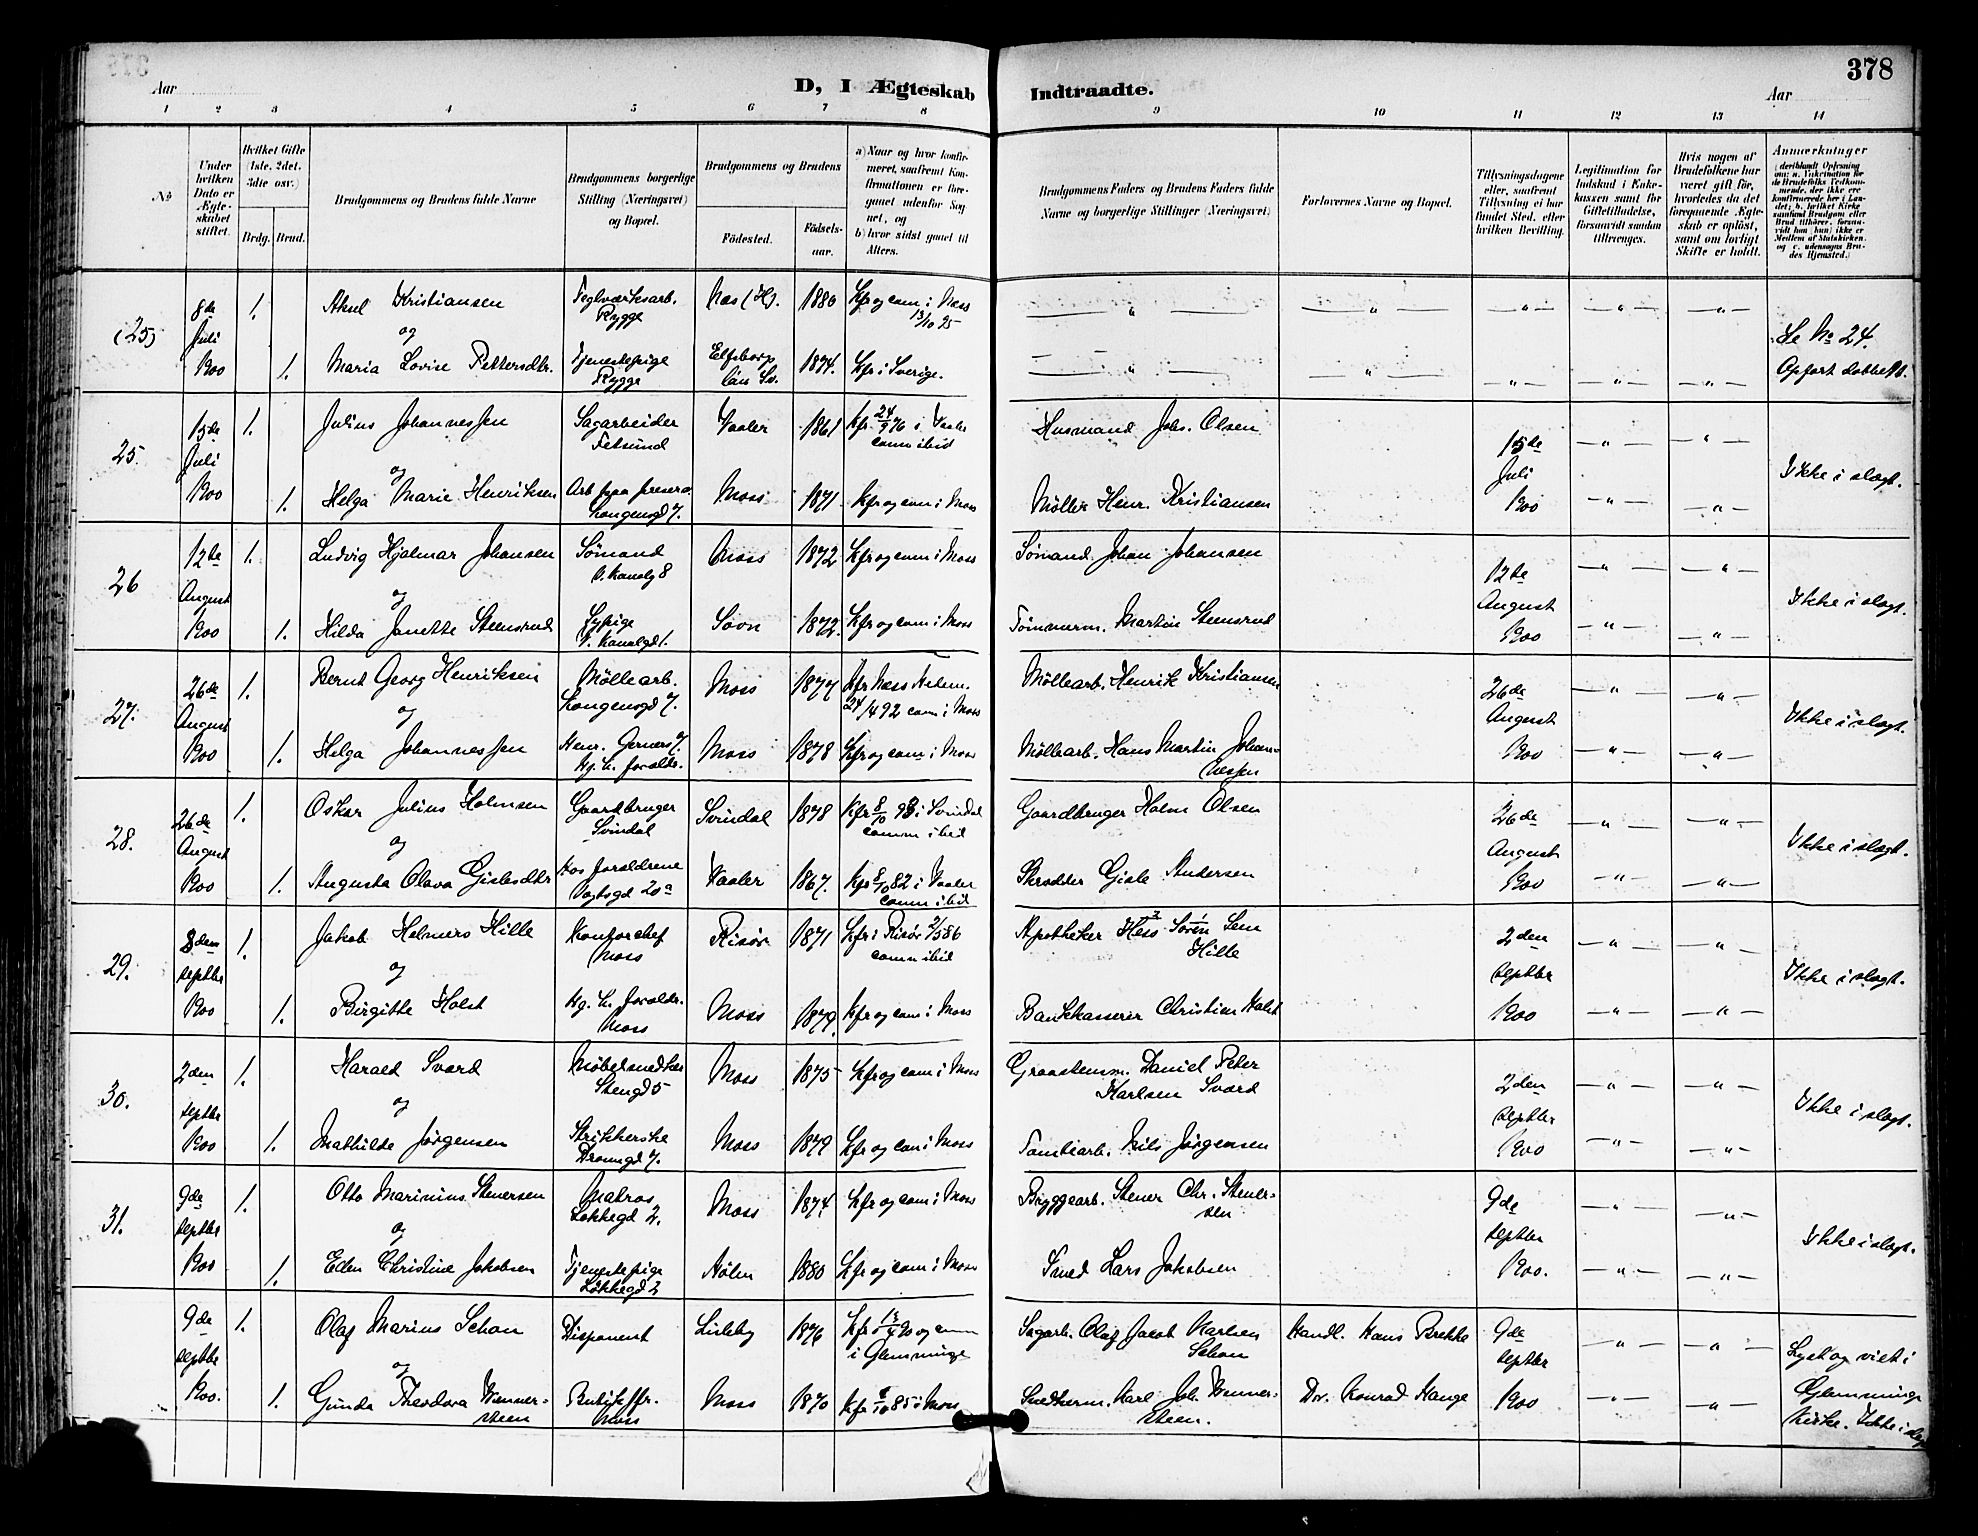 378
Aar
D, I Ægteskab Indtraadte.
Aar
1 2 3 4 5 6 7 8 9 10 11 12 13 14
No
Under hvilken Dato er Ægteskabet stiftet.
Hvilket Gifte (1ste, 2det, 3die osv.)
Brdg. Brud.
Brudgommens og Brudens fulde Navne
Brudgommens borgerlige Stilling (Næringsvei) og Bopæl.
Brudgommens og Brudens
Fødested. Fødselsaar.
a) Naar og hvor konfirmeret, saafremt Konfirmationen er foregaaet udenfor Sognet, og
b) hvor sidst gaaet til Alters.
Brudgommens Faders og Brudens Faders fulde Navne og borgerlige Stillinger (Næringsvei)
Forlovernes Navne og Bopæl.
Tillysningsdagene eller, saafremt Tillysning ei har fundet Sted, efter hvilken Bevilling.
Legitimation for Indskud i Enkekassen samt for Giftetilladelse, forsaavidt saadan tiltrænges.
Hvis nogen af Brudefolkene har været gift før, hvorledes da det foregaaende Ægteskab er opløst, samt om lovligt Skifte er holdt.
Anmærkninger
(deriblandt Oplysning om: a. Vakcination for de Brudefolks Vedkommende, der ikke ere konfirmerede her i Landet; b. hvilket Kirkesamfund Brudgom eller Brud tilhører, forsaavidt han (hun) ikke er Medlem af Statskirken, og c. udensogns Brudes Hjemsted.)
(25) 8de Juli 1900 1. Aksel Kristiansen Teglværksarb. Rygge Næs (H). 1880 Kfr og com i Næss 13/10 95 — " — — " — — " — — " — — " —
og
1. Maria Lovise Pettersdtr. Tjenestepige Rygge Elfsborg län Sv. 1874. Kfr i Sverige. — " — — " — — " — — " — — " —
Se No 24. Opført dobbelt.
25. 15de Juli 1900 1. Julius Johannessen Sagarbeider Fetsund Vaaler 1861 Kfr 24/9 76 i Vaaler comm ibid Husmand Johs. Olsen 15de Juli 1900 — " — — " —
og
1. Helga Marie Henriksen Arb. paa preserv. Kongensgd 7. Moss 1871 Kfr og com i Moss Møller Henr. Kristiansen — " — — " —
Ikke i slægt.
26 12te August 1900 1. Ludvig Hjalmar Johansen Sømand V. Kanalg 8 Moss 1872 Kfr og com i Moss Sømand Johan Johansen 12te August 1900 — " — — " —
og
1. Hilda Janette Stensrud Sypige V. Kanalgd 1. Sovn 1872. Kfr og com i Moss Tømmerm. Martin Stensrud — " — — " —
Ikke i slægt.
27. 26de August 1900 1. Bernt Georg Henriksen Møllearb. Kongensgd 7. Moss 1877 Kfr Næss Hedem. 24/4 92 com i Moss Møllearb. Henrik Kristiansen 26de August 1900 — " — — " —
og
1. Helga Johannessen Henr. Gerners 7. Hj. h. forældr. Moss 1878 Kfr og com i Moss Møllearb. Hans Martin Johannessen — " — — " —
Ikke i slægt.
28. 26de August 1900 1. Oskar Julius Holmsen Gaardbruger Svindal Svindal 1878 Kfr 8/10 93 i Svindal comm ibid Gaardbruger Holm Olsen 26de August 1900 — " — — " —
og
1. Augusta Olava Gislesdtr Hos forældrene Vogtsgd 20a Vaaler 1867. Kfr 8/10 82 i Vaaler comm ibid Skrædder Gisle Andersen — " — — " —
Ikke i slægt.
29. 2den septbr 1900 1. Jakob Helmers Hille Kontorchef Moss Risør 1871 Kfr i Risør 2/5 86 comm ibid Apotheker Hess Sören Lem Hille 2den septbr 1900 — " — — " —
og
1. Birgitte Holst Hj. h. forældr. Moss Moss 1879. Kfr og com i Moss Bankkasserer Christian Holst — " — — " —
Ikke i slægt.
30. 2den septbr 1900 1. Harald Svard Møbelsnedker Stengd 5 Moss 1875 Kfr og com i Moss Graastensm. Daniel Peter Karlsen Sværd 2den septbr 1900 — " — — " —
og
1. Mathilde Jørgensen Strikkerske Dronngd 7. Moss 1879 Kfr og com i Moss Tomtearb. Nils Jørgensen — " — — " —
Ikke i slægt.
31. 9de septbr 1900 1. Otto Marinius Stenersen Matros Løkkegd 2. Moss 1874 Kfr og com i Moss Bryggearb. Stener Chr. Stenersen 9de septbr 1900. — " — — " —
og
1. Ellen Christine Jakobsen Tjenestepige Løkkegd 2 Hølen 1880 Kfr og com i Moss Smed Lars Jakobsen — " — — " —
Ikke i slægt.
9de septbr 1900. 1. Olaf Marius Schou Disponent Lisleby 1876 Kfr 13/4 90 og comm i Glemminge Sagarb. Olaf Jacob Karlsen Schou Handl. Hans Brekke 9de septbr 1900 — " — — " —
og
1. Gunda Theodora Wennersteen Butikfr. Moss Moss 1870 Kfr 4/10 85 i Moss Snedkerm. Karl Joh. Wennersteen. Dr. Konrad Hange — " — — " —
Lyst og viet i Glemminge kirke. Ikke i slægt